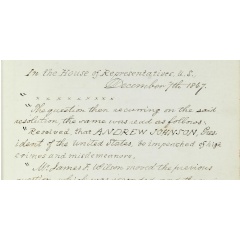 In the House of Representatives, U.S.
December 7th 1867.
"The question then recurring on the said
resolution, the same was read as follows:
"Resolved, that ANDREW JOHNSON, Pres-
ident of the United States, be impeached of high
crimes and misdemeanors.
"Mr. James F. Wilson moved the previous